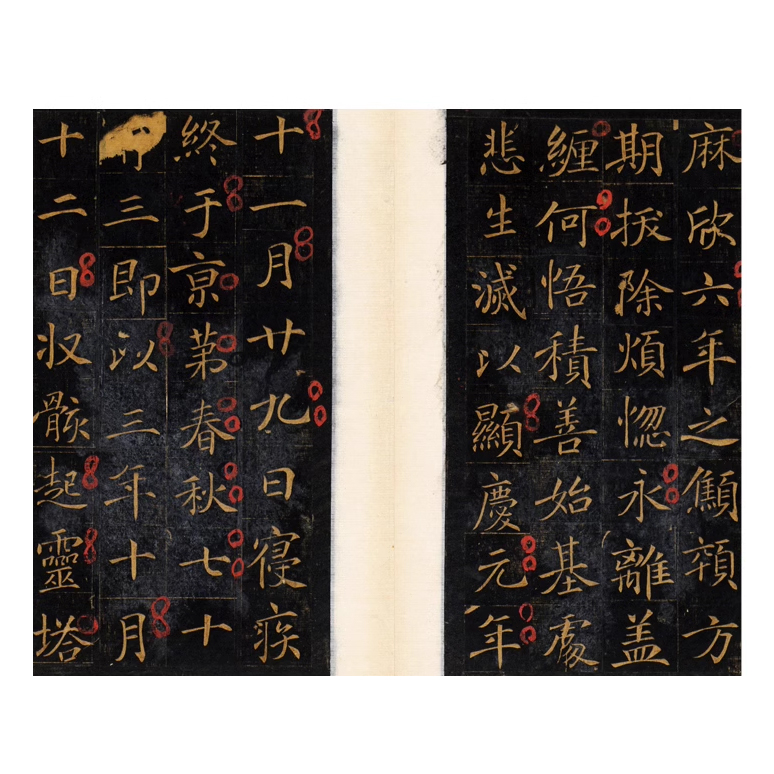 麻欣六年之顦顇方
期拔除煩惚永離盖
纏何悟積善始基處
悲生滅以顯慶元年
十一月廿九日寑疾
終于京第春秋七十
三即以三年十月
十二日収骸起靈塔